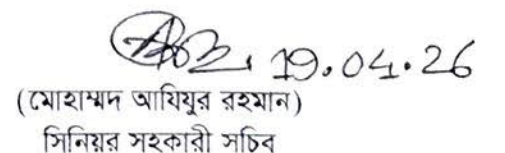 19.04.26
(মোহাম্মদ আযিযুর রহমান)
সিনিয়র সহকারী সচিব